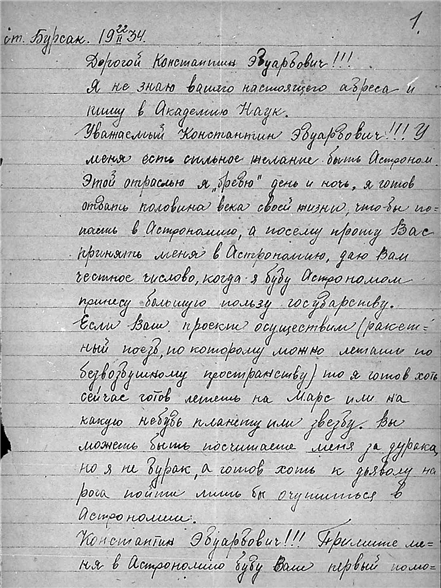 1.
ст. Бурсак. 19 22/II 34.
Дорогой Константин Эдуардович!!!
Я не знаю вашего настоящего адреса и
пишу в Академию Наук.
Уважаемый Константин Эдуардович!!! У
меня есть сильное желание быть Астроном.
Этой отраслью я „бредю" день и ночь, я готов
отдать половина века своей жизни, что-бы по-
пасть в Астрономию, а посему прошу Вас
принять меня в Астрономию, даю Вам
честное числово, когда я буду Астрономом
принесу большую пользу государству.
Если Ваш проект осуществим (ракет-
ный поезд, по которому можно летать по
безвоздушному пространству) то я готов хоть
сейчас готов лететь на Марс или на
какую нибудь планету или звезду. Вы
можеть быть посчитаете меня за дурака,
но я не дурак, а готов хоть к дьяволу на
рога пойти лишь бы очутиться в
Астрономии.
Константин Эдуардович!!! Примите ме-
ня в Астрономию буду Ваш первый помо-